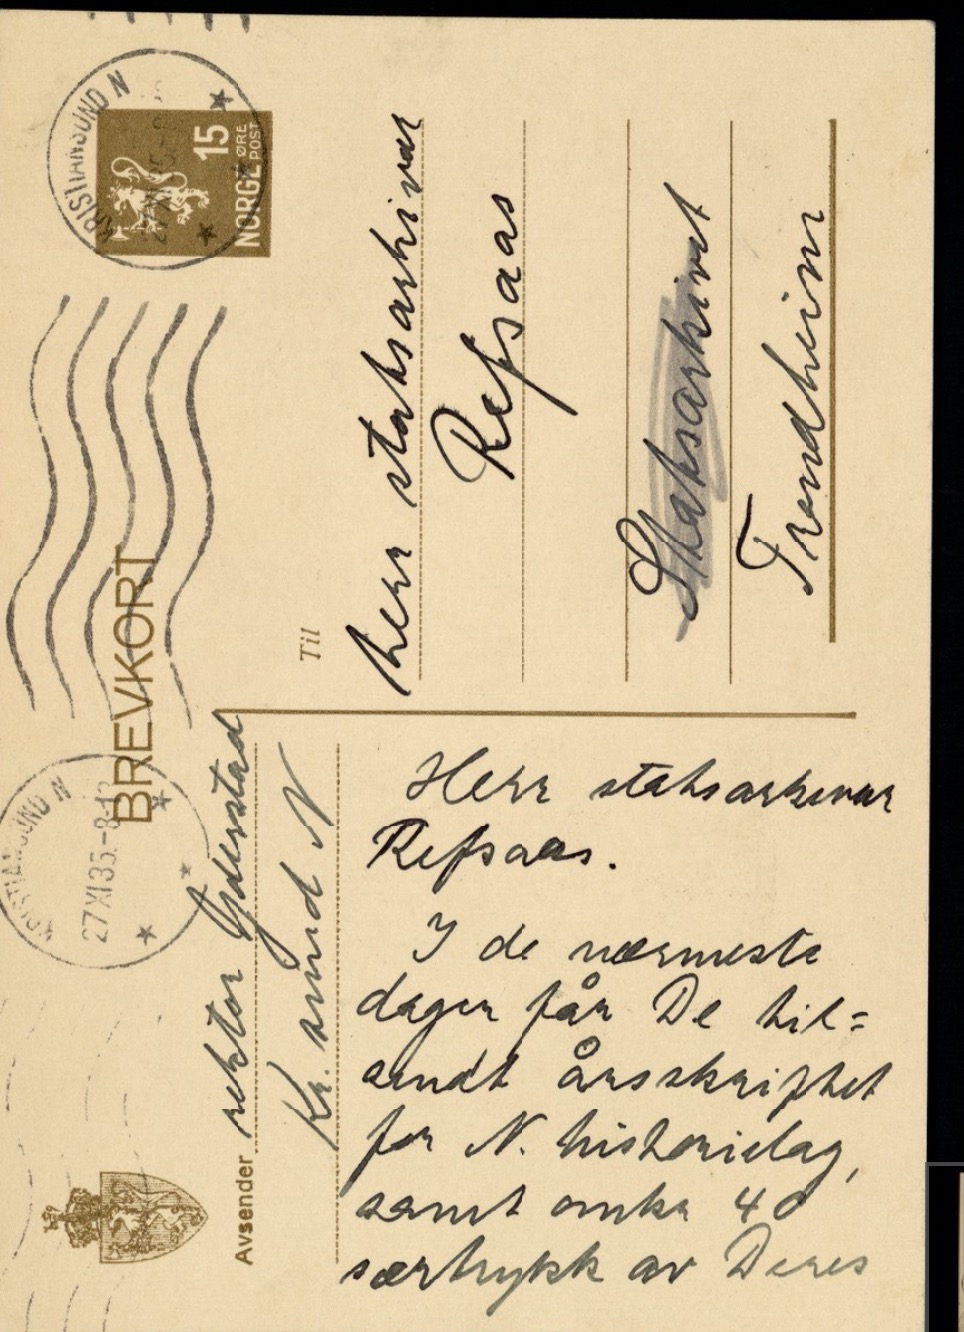 KRISTIANSUND N
27 XI 35
NORGE
15
ØRE
POST
BREVKORT
KRISTIANSUND N
27 XI 35.-8-12
Til
herr statsarkivar
Refsaas
Statsarkivet
Trondheim
Avsender rektor
Kr.sund N
Herr statsarkivar
Refsaas.
I de nærmeste
dager får De til=
sendt årsskriftet
for N. historielag,
samt omkr 40
særtrykk av Deres